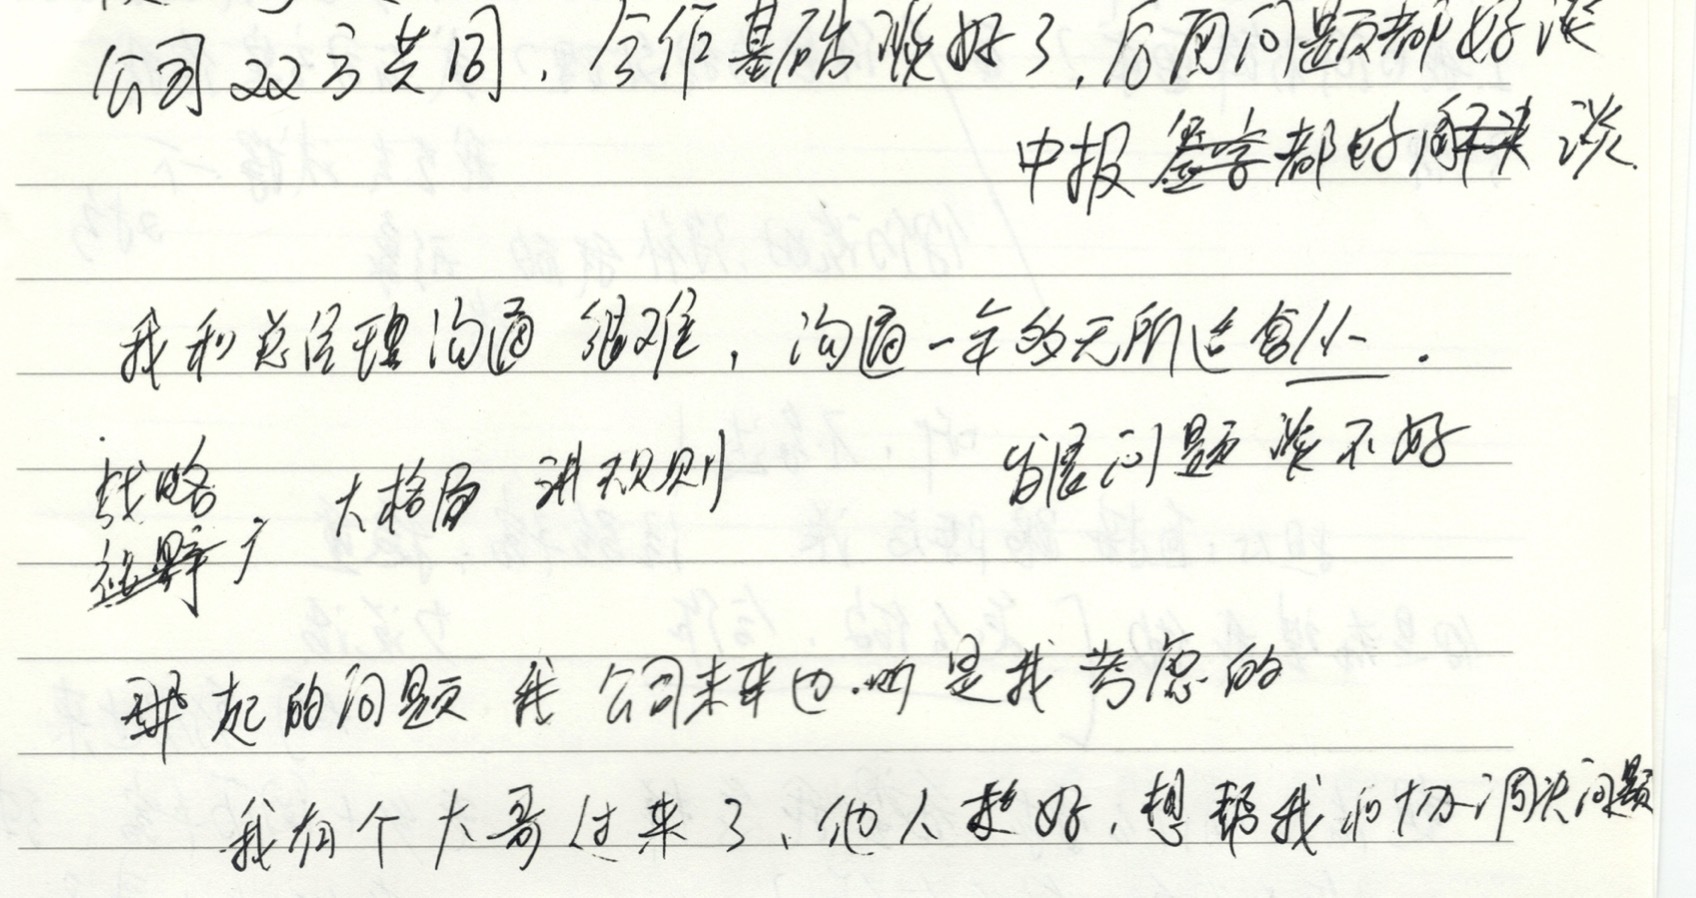 公司22方共同,合作基础谈好了,后面问题都好谈
申报签字都好解决 谈.
我和总经理沟通很难,沟通一年多无所适
发展问题谈不好
战略 大格局 讲规则
视野广
起的问题 我公司未来也 是我考虑的
我有个大哥过来了、他人挺好,想帮我们协调决问题